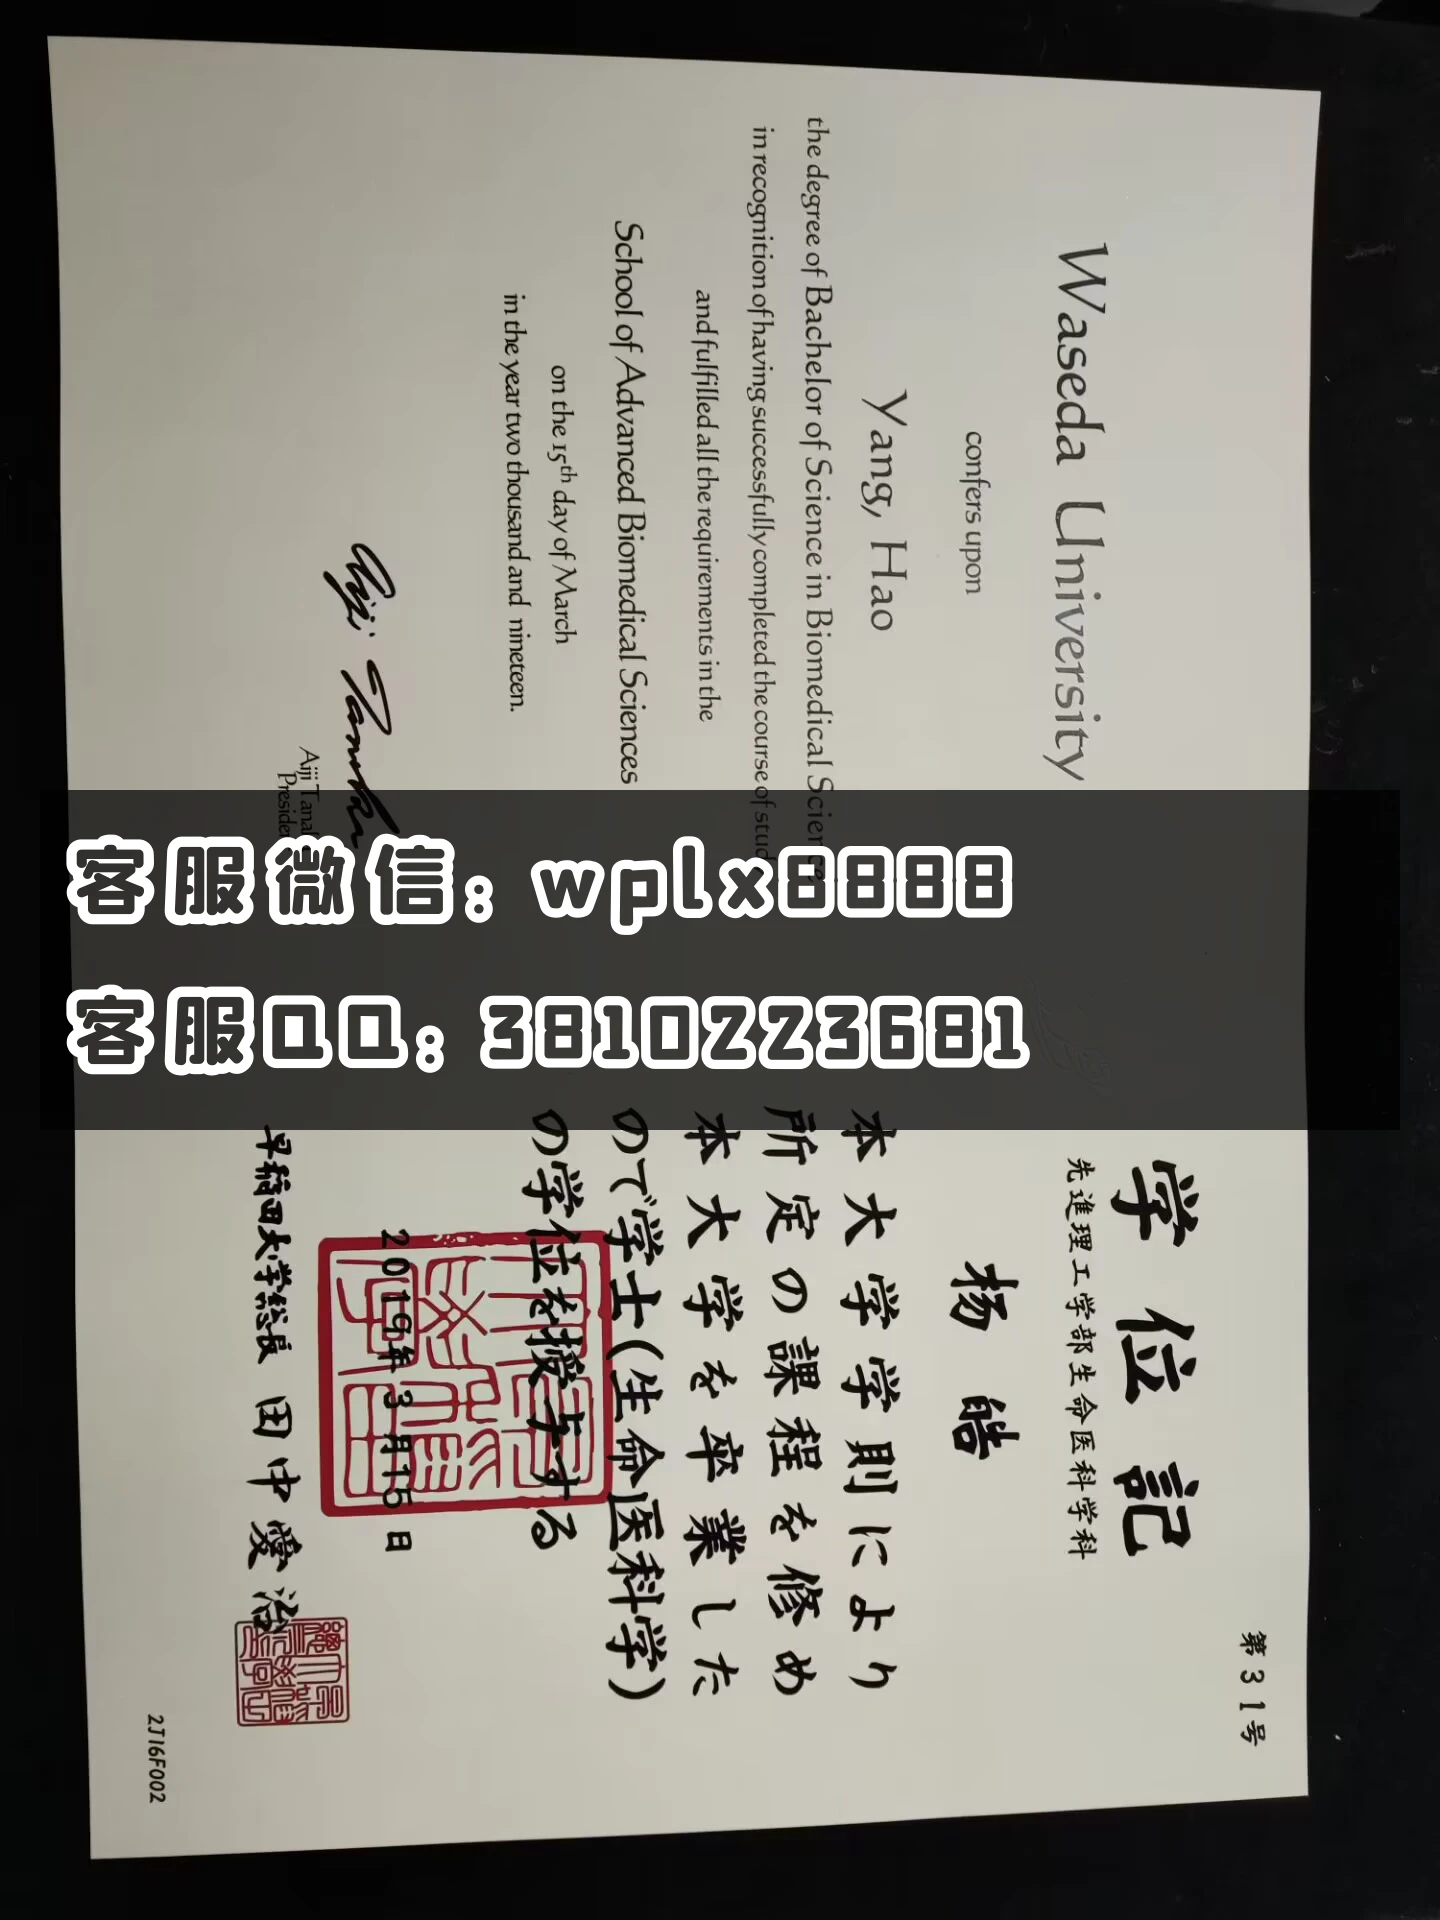 Waseda University
confers upon
Yang, Hao
the degree of Bachelor of Science in Biomedical Science
in recognition of having successfully completed the course of stud
and fulfilled all the requirements in the
School of Advanced Biomedical Sciences
on the 15th day of March
in the year two thousand and nineteen.
Aiji Tana
Preside
客服微信: wplx8888
客服QQ: 3810223681
第31号
学位記
先進理工学部生命医科学科
杨皓
本大学学則により
所定の課程を修め
本大学を卒業した
ので学士(生命医科学)
の学位を授与する
2019年3月15日
早稲田大学総長 田中愛治
2J16F002